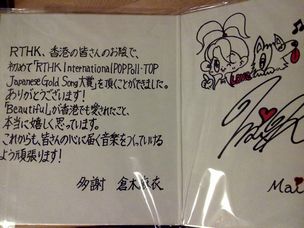 RTHK、香港の皆さんのお陰で、
初めて「RTHK International POP Poll-TOP
Japanese Gold Song大賞」を頂くことができました。
ありがとうございます!
「Beautiful」が香港でも愛されたこと、
本当に嬉しく思っています。
これからも、皆さんの心に届く音楽をつくっていける
よう頑張ります!
多謝 倉木麻衣
LOVE
Mai